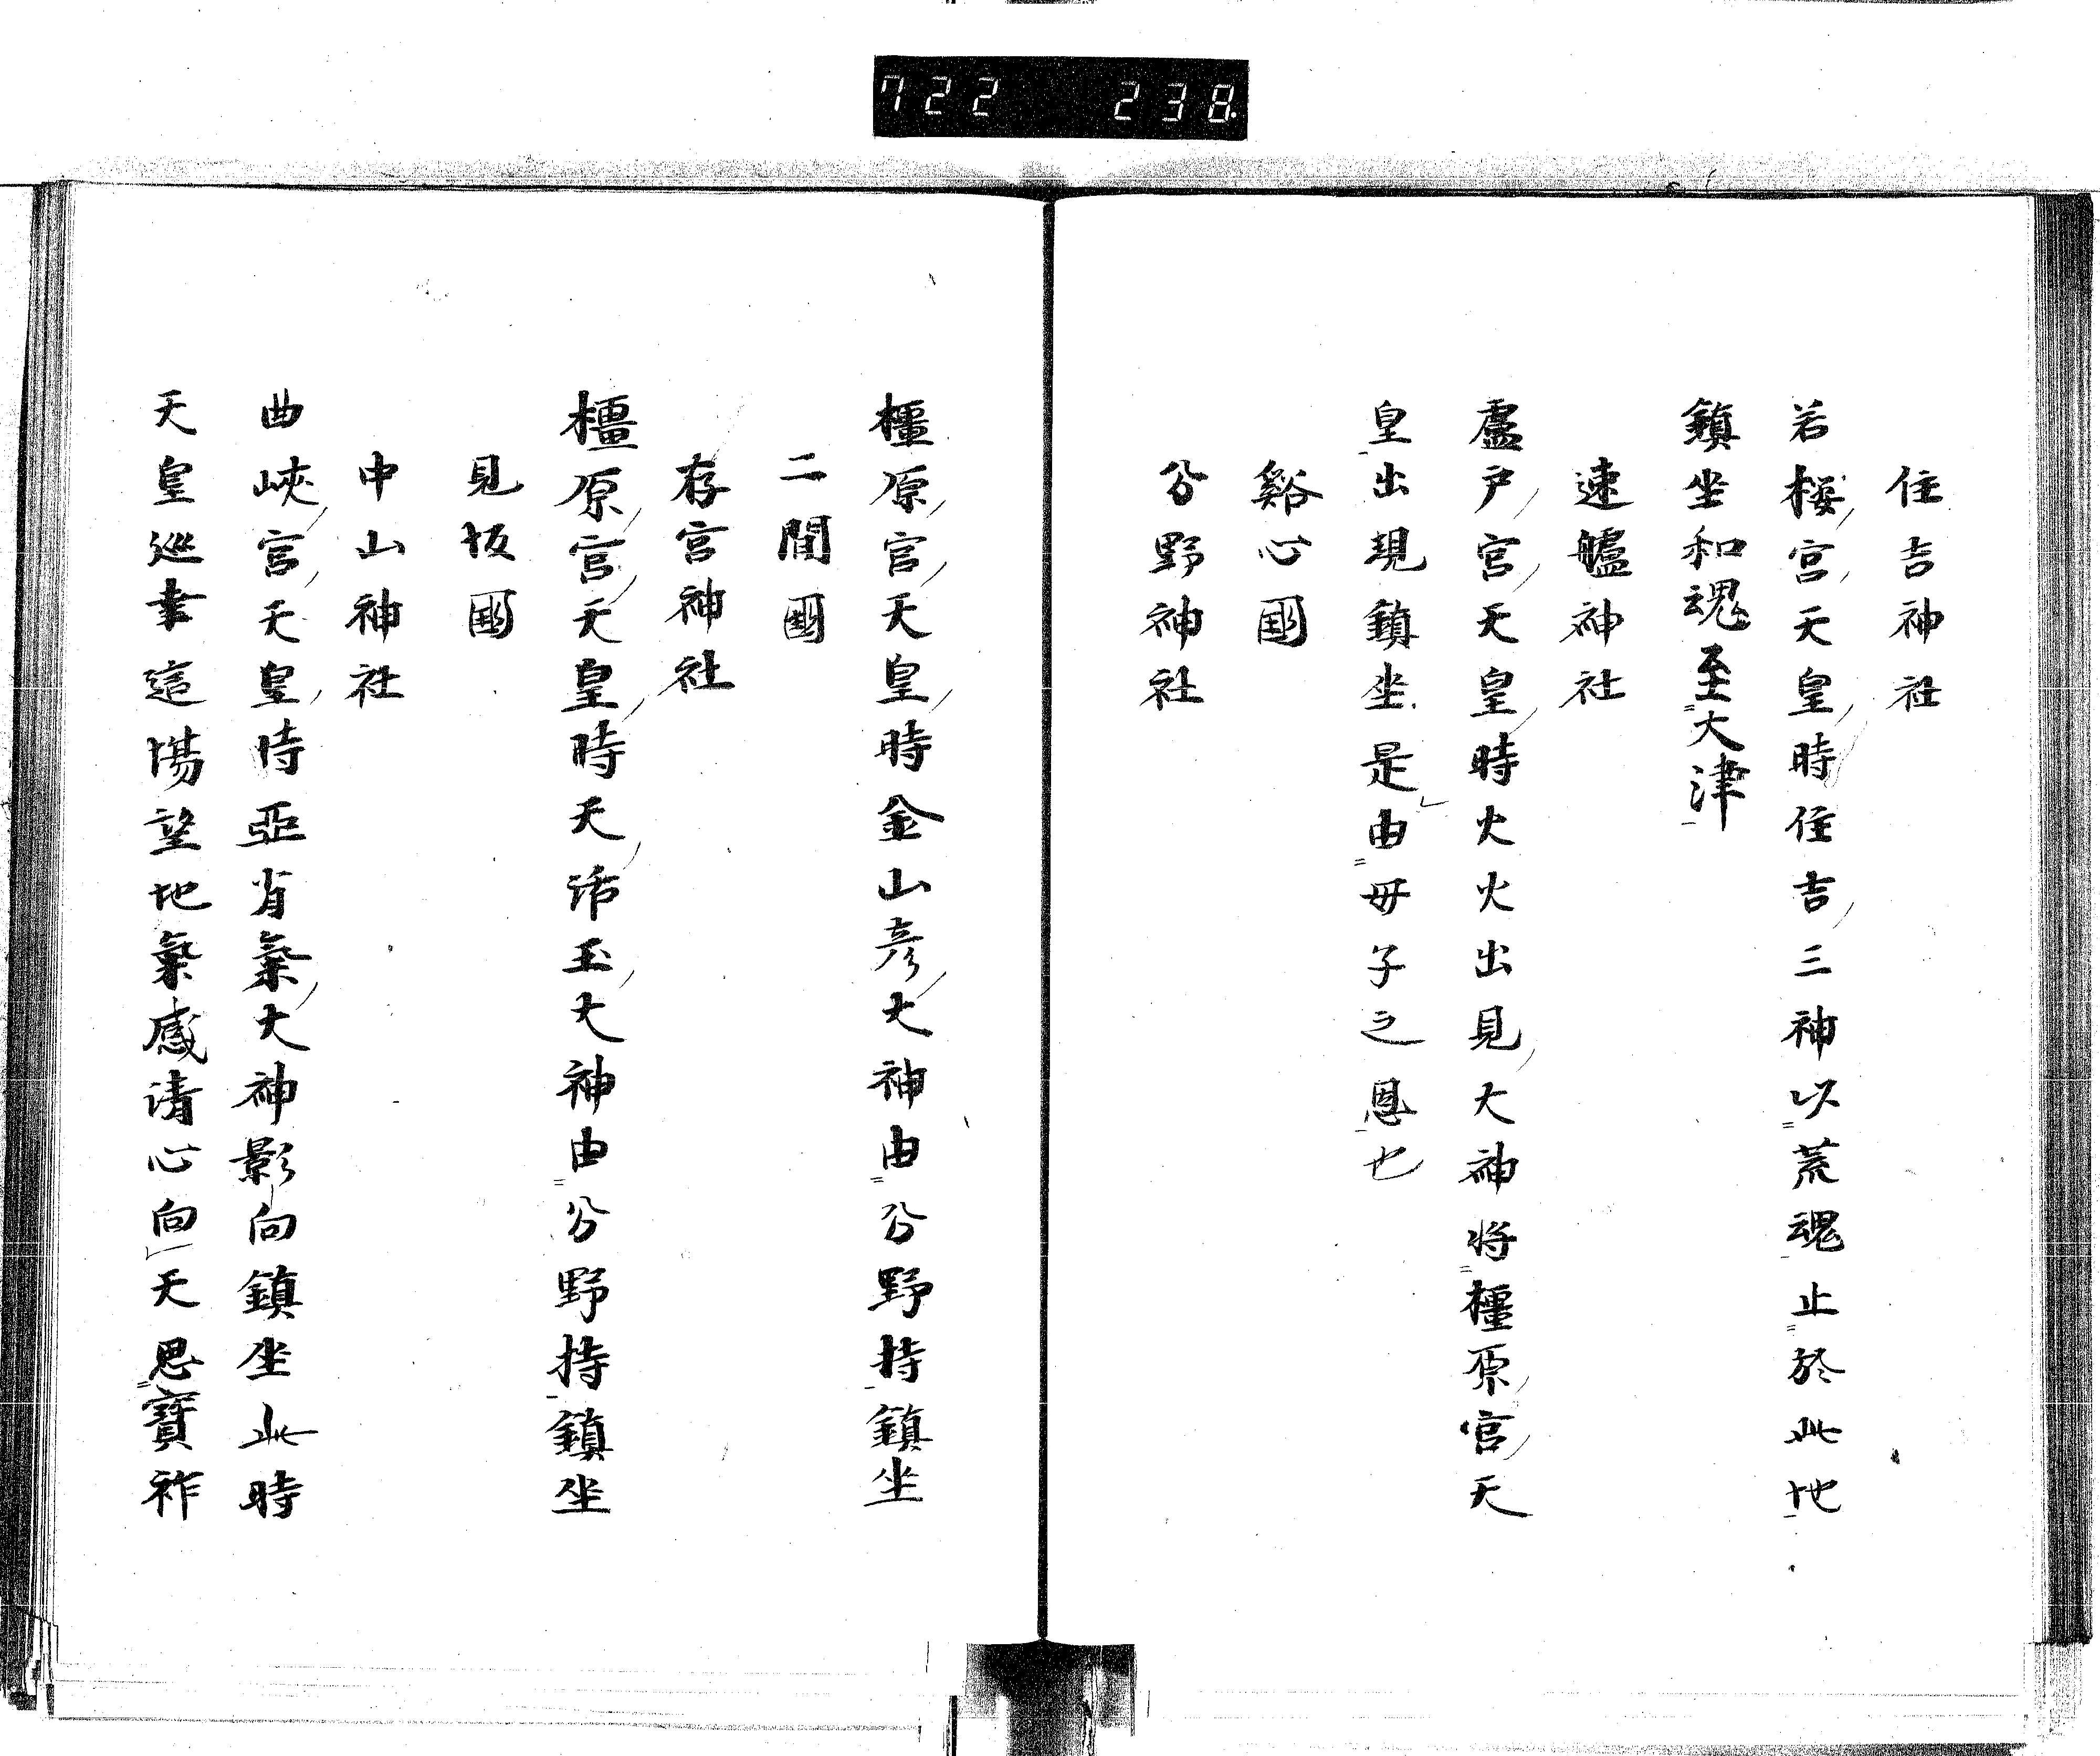 722 238
住吉神社
若桜宮天皇時住吉三神以荒魂止於此地
鎮坐和魂至大津
速艫神社
盧戸宮天皇時火火出見大神将橿原宮天
皇出現鎮坐是由母子之恩也
谿心國
分野神社
橿原宮天皇時金山彦大神由分野持鎮坐
二間國
存宮神社
橿原宮天皇時天沸玉大神由分野持鎮坐
見坂國
中山神社
曲峽宮天皇時亞肖氣大神影向鎮坐此時
天皇巡幸這場望地氣感清心向天思寶祚